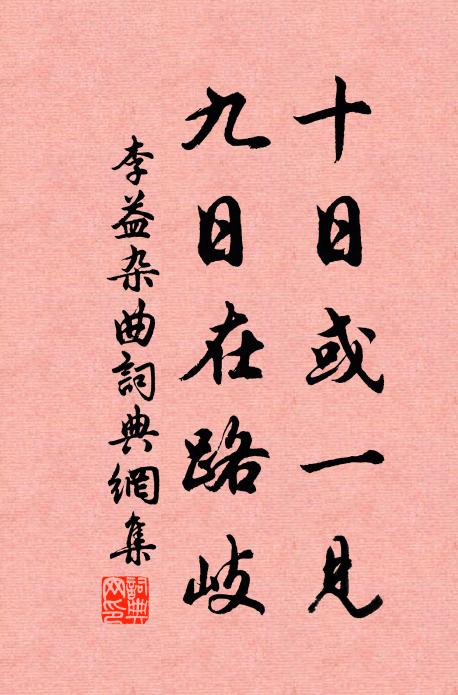 十日或一見
九日在路岐
李益杂曲詞典網集
詞典網印